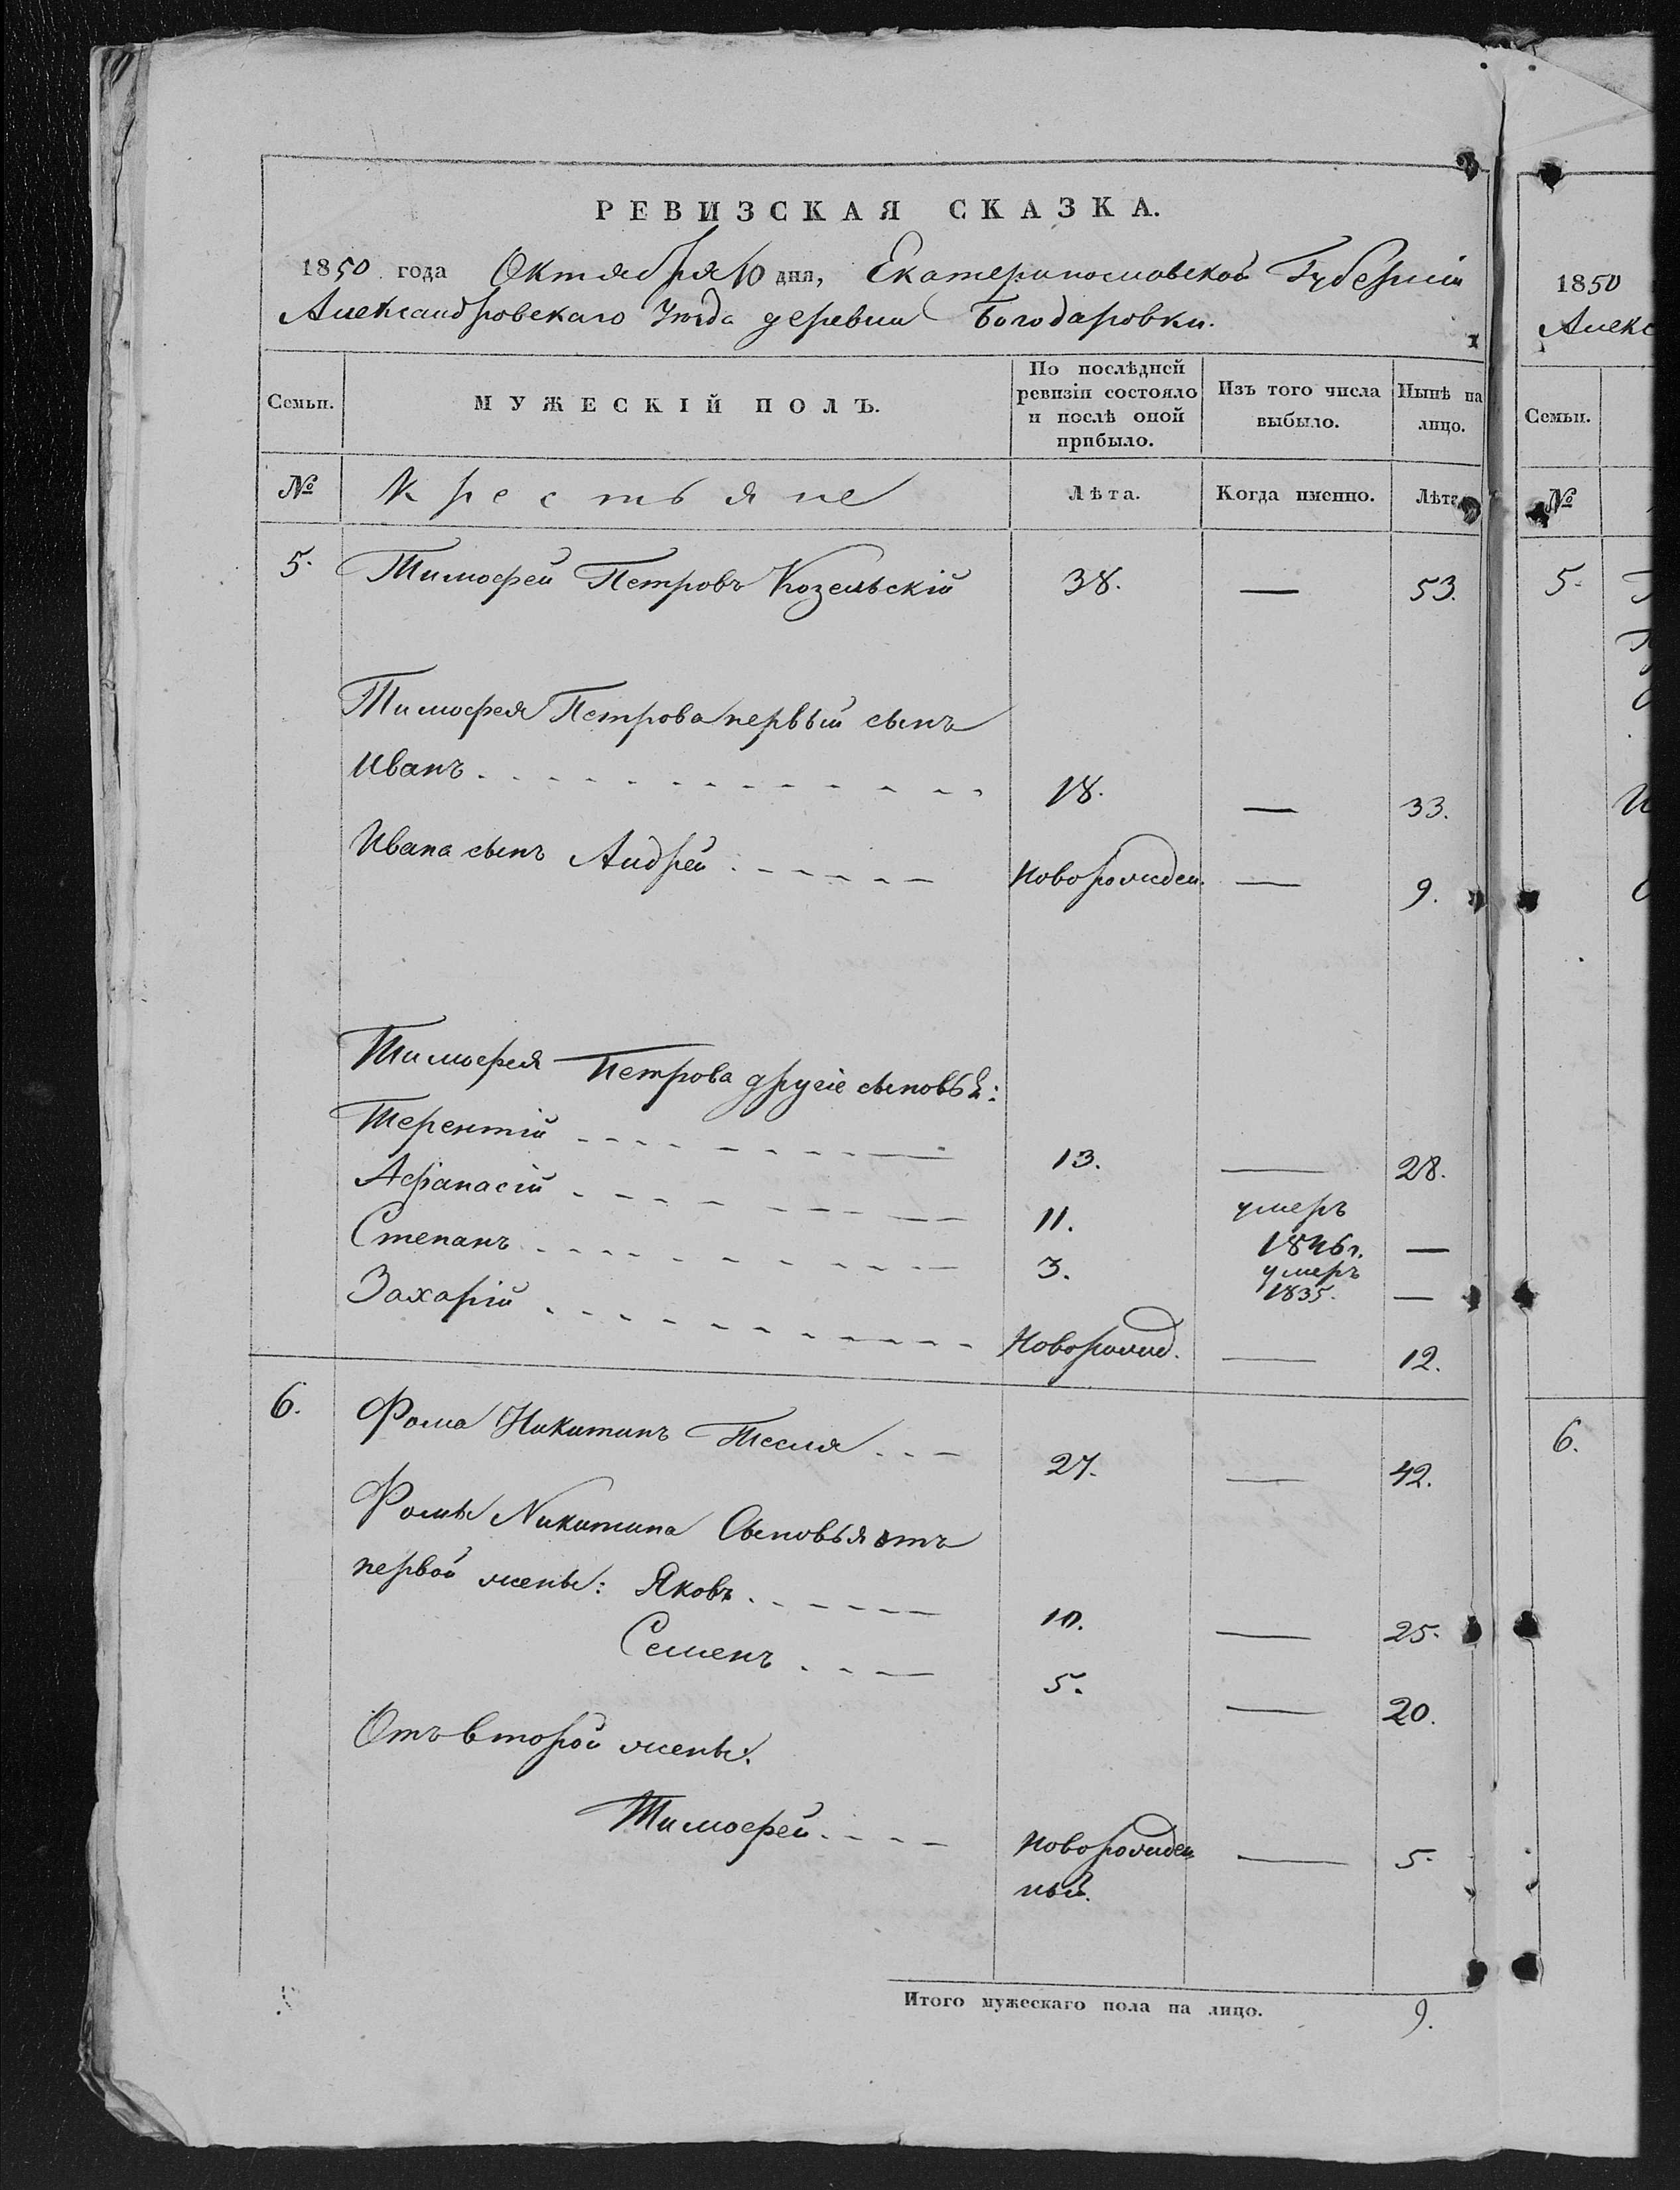 РЕВИЗСКАЯ СКАЗКА.
1850 года Октября 10 дня, Екатеринославской Губерніи
Александровскаго Уѣзда деревни Богодаровки.
Семьи. МУЖЕСКІЙ ПОЛЪ. По послѣдней ревизіи состояло и послѣ оной прибыло. Изъ того числа выбыло. Нынѣ на лицо.
№ Крестьяне Лѣта. Когда именно. Лѣта
5. Тимофей Петровъ Козельскій 38. — 53.
Тимофея Петрова первый сынъ
Иванъ 18. — 33.
Ивана сынъ Андрей Новорожден. — 9.
Тимофея Петрова другіе сыновья:
Терентій 13. — 28.
Афанасій 11. умеръ 1846 г. —
Степанъ 3. умеръ 1835. —
Захарій Новорожд. — 12.
6. Фома Никитинъ Тесля 27. — 42.
Фомы Никитина Сыновья отъ
первой жены: Яковъ 10. — 25.
Семенъ 5. — 20.
Отъ второй жены:
Тимофей Новорожден — 5.
ный.
Итого мужескаго пола на лицо. 9.
1850
Алекс
Семьи.
№
5.
6.